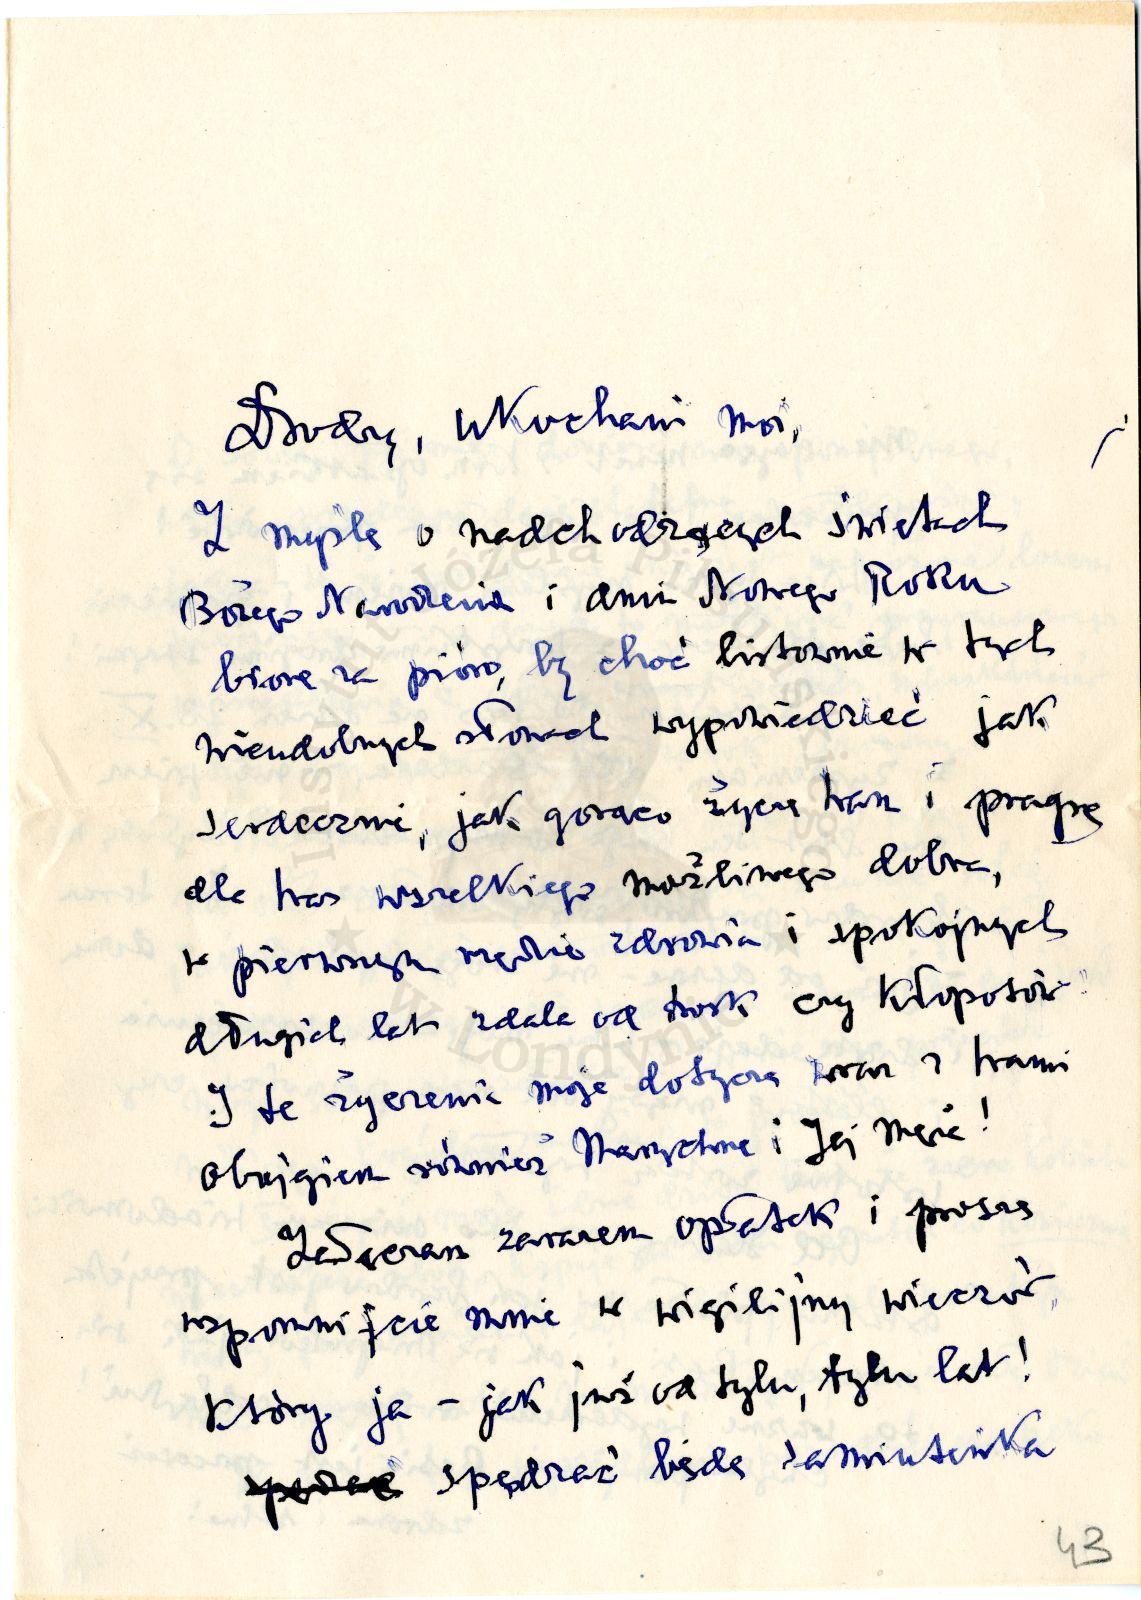 Drodzy, ukochani moi,
Z myślą o nadchodzących świętach
Bożego Narodzenia i dniu Nowego Roku
biorę za pióro, by choć listownie w tych
nieudolnych słowach wypowiedzieć jak
serdecznie, jak gorąco życzę Wam i pragnę
dla Was wszelkiego możliwego dobra,
w pierwszym rzędzie zdrowia i spokojnych
długich lat zdala od trosk czy kłopotów.
I te życzenia moje dotyczą wraz z Wami
obojgiem również Marychnę i Jej męża!
Załączam zarazem opłatek i proszę
wspomnijcie mnie w wigilijny wieczór,
który ja – jak już od tylu, tylu lat!
spędzać będę samiuteńka
43
Instytut Józefa Piłsudskiego
★ w Londynie ★